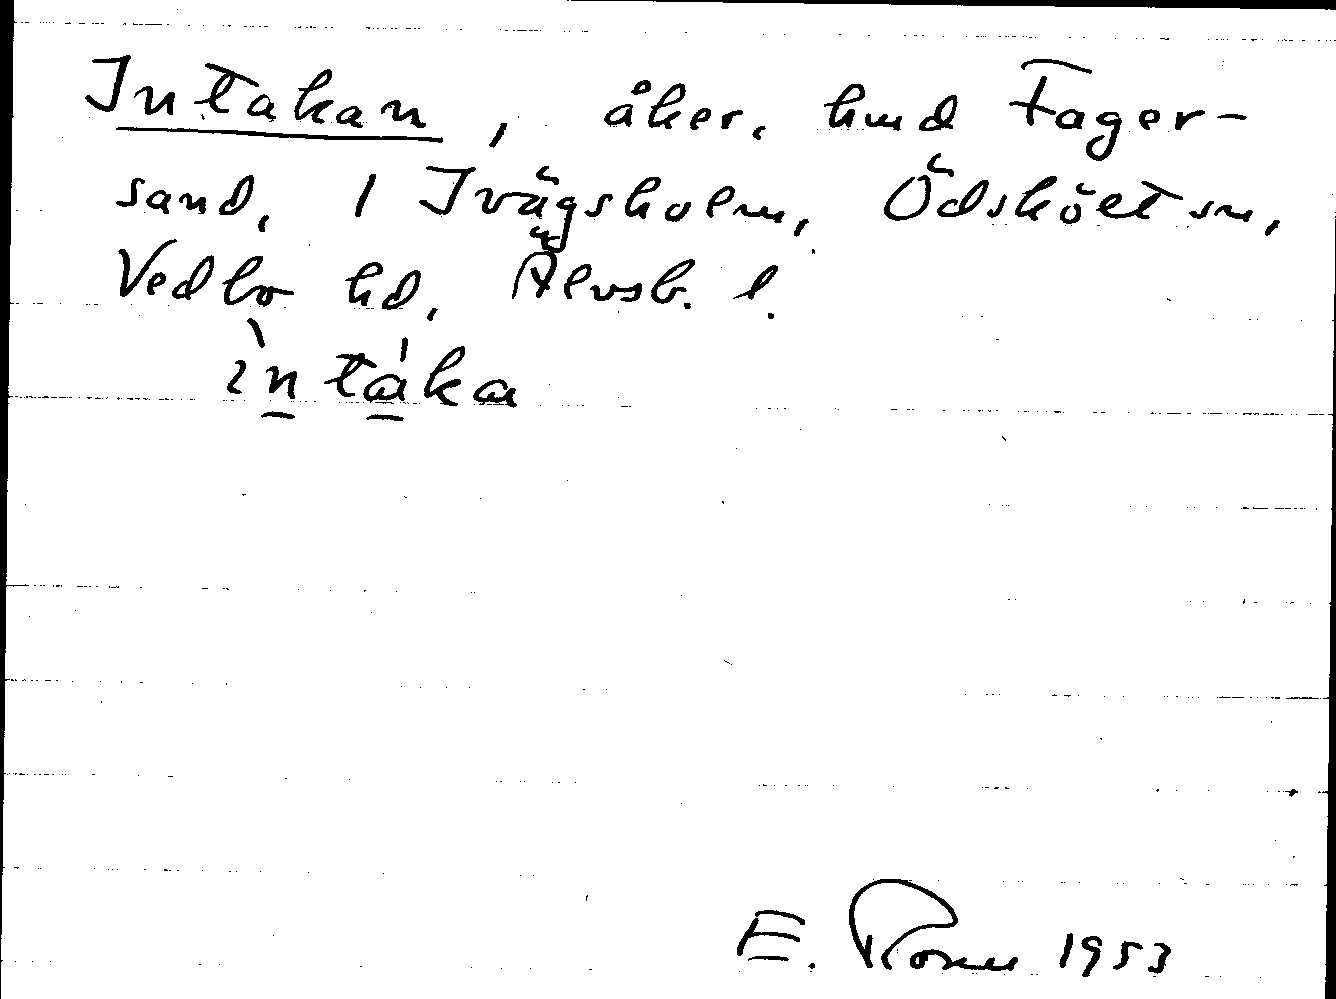 Intakan, åker, hmd Fager-
sand, 1 Ivägsholm, Ödsköelt sn,
Vedbo hd, Älvsb. l.
ìntáka
E. 1953